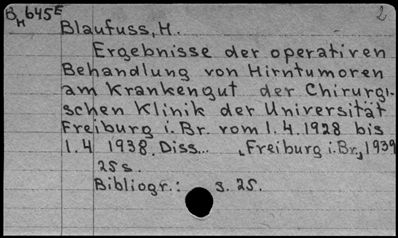 8H645E 2
Blaufuss, H.
Ergebnisse der operativen
Behandlung von Hirntumoren
am Krankengut der Chirurgi-
schen Klinik der Universität
Freiburg i. Br. vom 1.4.1928 bis
1.4 1938. Diss... Freiburg i. Br., 1939
25 s.
Bibliogr.: s. 25.